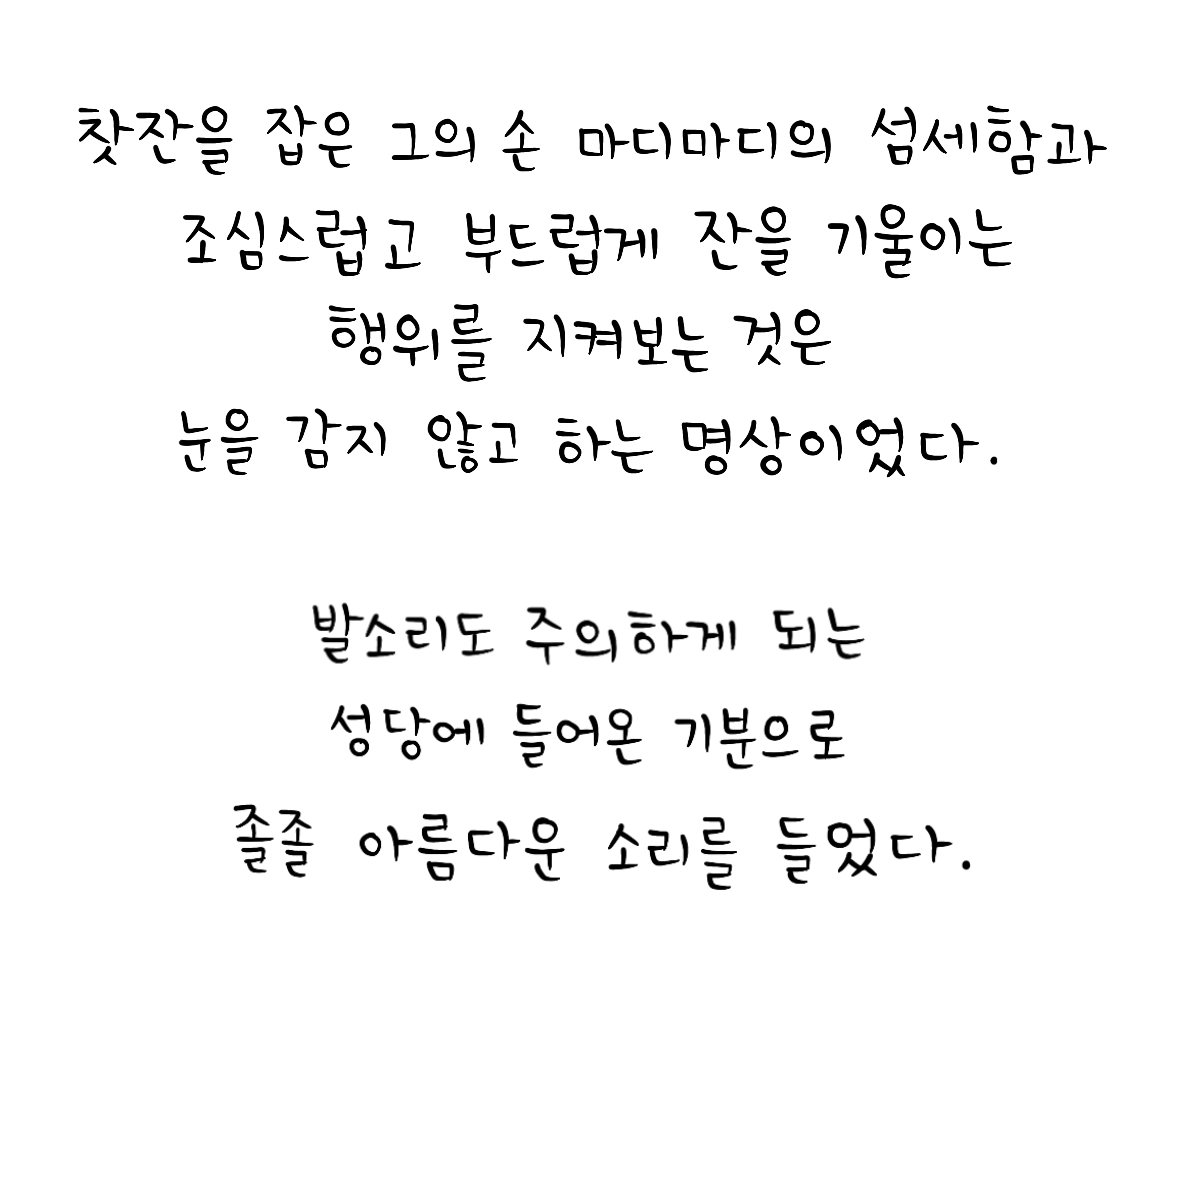 찻잔을 잡은 그의 손 마디마디의 섬세함과
조심스럽고 부드럽게 잔을 기울이는
행위를 지켜보는 것은
눈을 감지 않고 하는 명상이었다.
발소리도 주의하게 되는
성당에 들어온 기분으로
졸졸 아름다운 소리를 들었다.